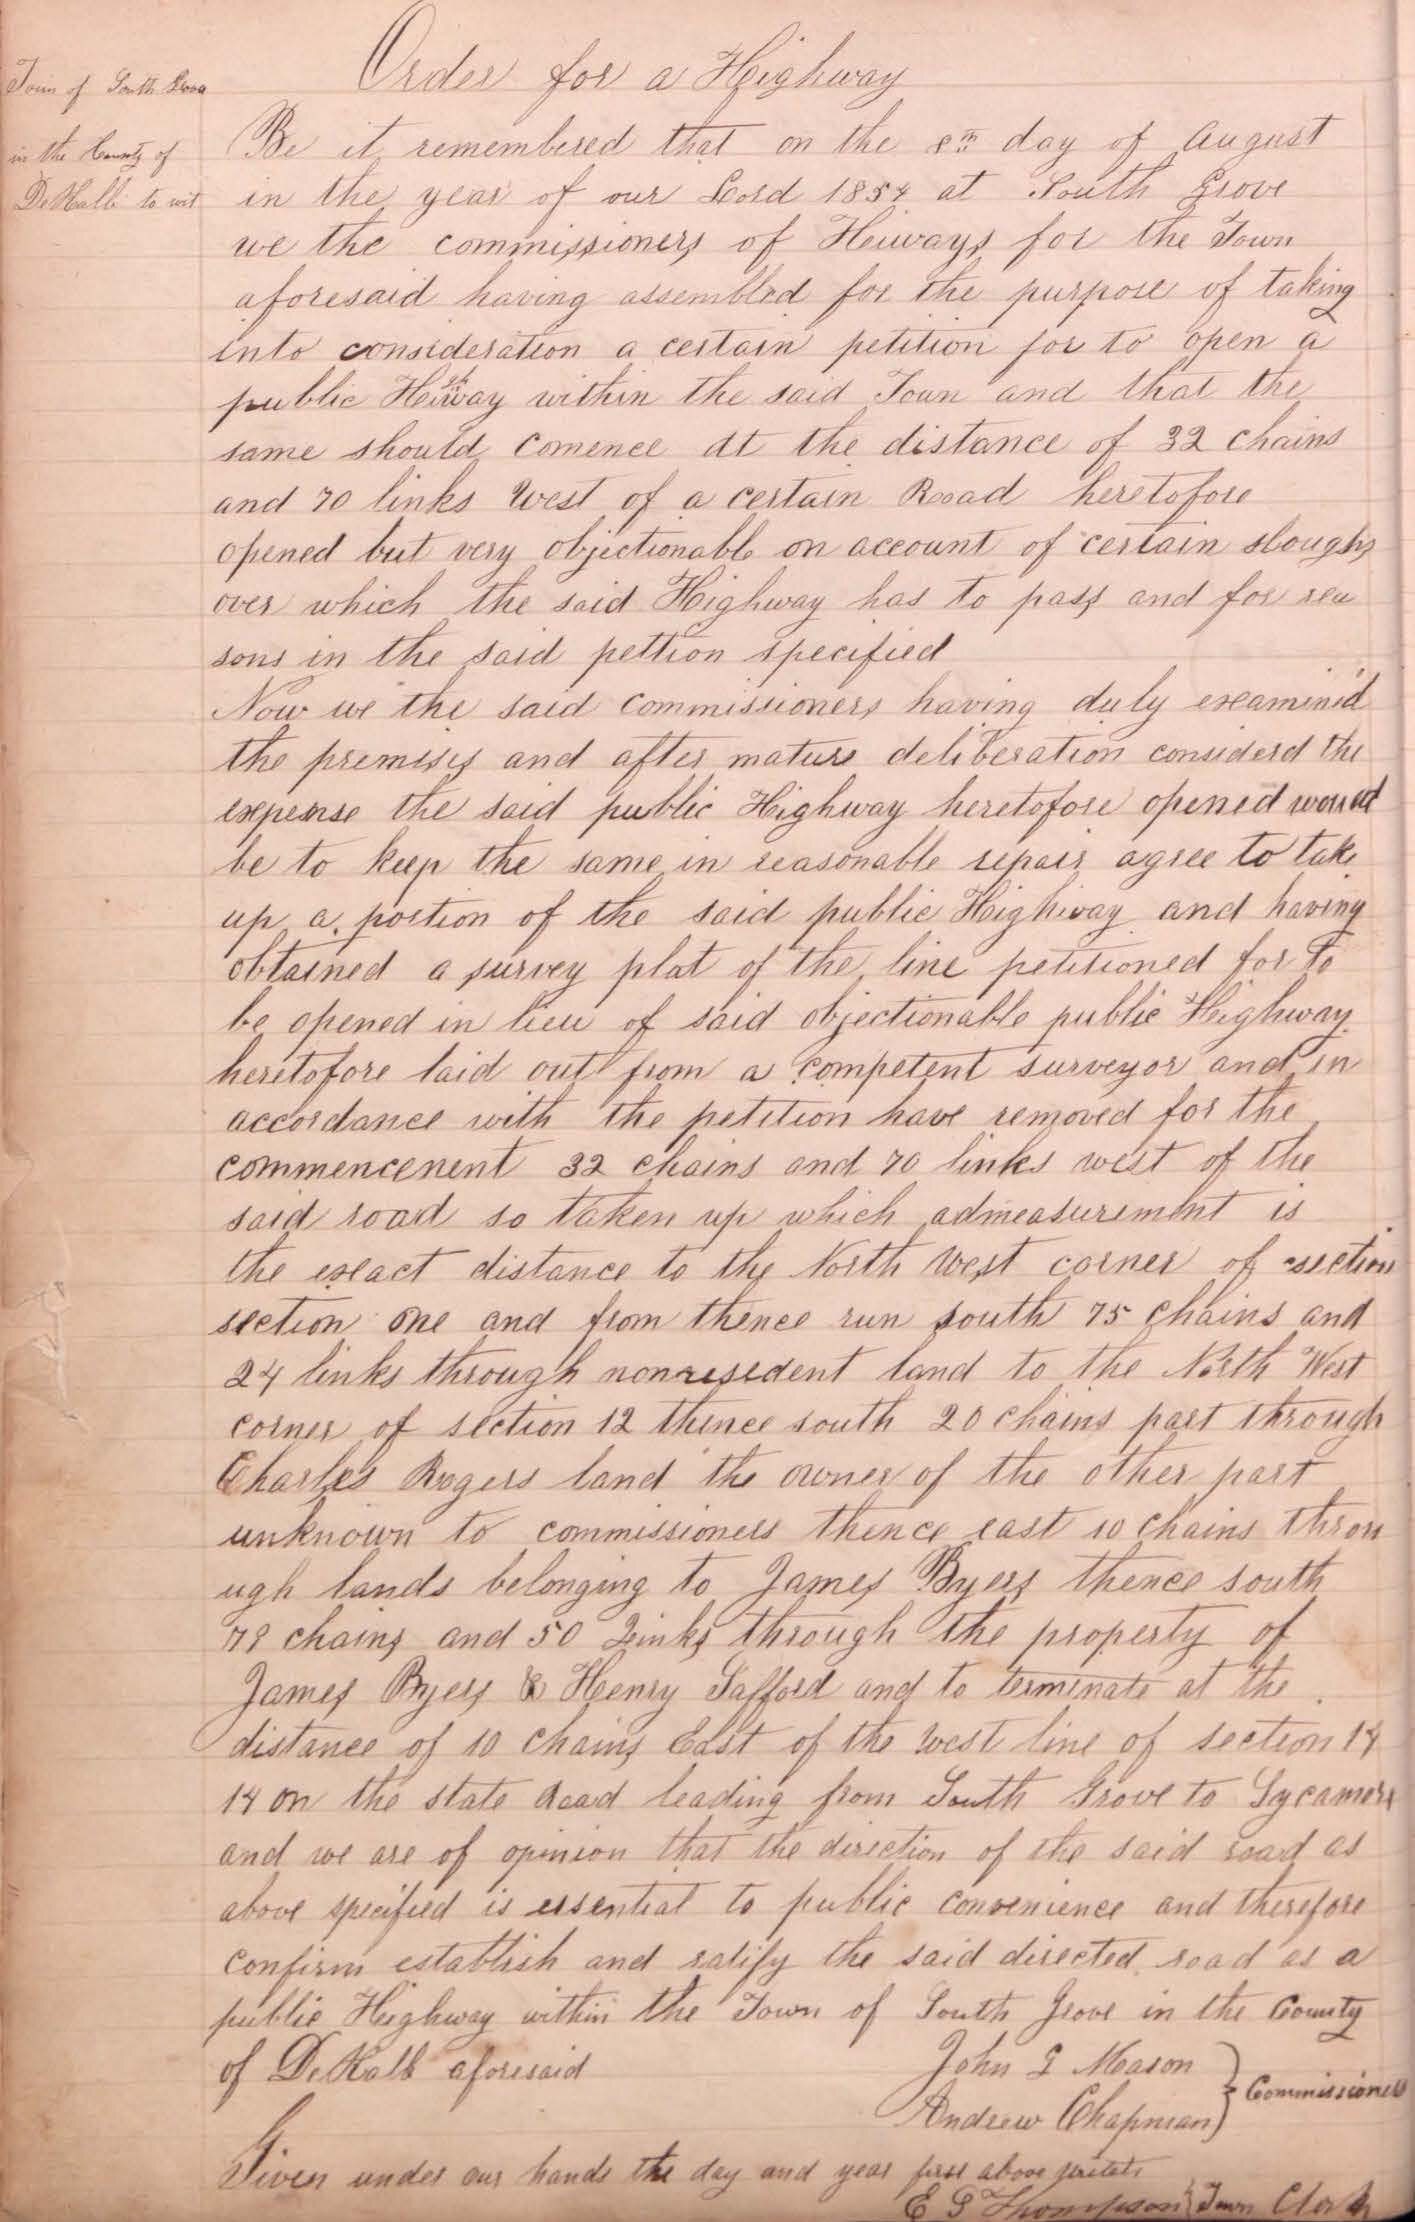 Order for a Highway
Town of South Grove
in the County of
DeKalb to wit
Be it remembered that on the 8th day of August
in the year of our Lord 1854 at South Grove
we the commissioners of Heiways for the Town
aforesaid having assembled for the purpose of taking
into consideration a certain petition for to open a
public Heighway within the said Town and that the
same should comence at the distance of 32 chains
and 70 links West of a certain Road heretofore
opened but very objectionable on account of certain sloughs
over which the said Highway has to pass and for rea
sons in the said pettion specified
Now we the said commissioners having duly examinid
the premises and after mature deliberation considerd the
expense the said public Highway heretofore opened would
be to keep the same in reasonable repair agree to take
up a portion of the said public Heighway and having
obtained a survey plat of the line petitioned for to
be opened in lieu of said objectionable public Heighway
heretofore laid out from a competent surveyor and in
accordance with the petition have removed for the
commencenent 32 chains and 70 links west of the
said road so taken up which admeasurement is
the exact distance to the North West corner of section
section one and from thence run south 75 chains and
24 links through nonresedent land to the North West
corner of section 12 thence south 20 chains part through
Charles Rogers land the owner of the other part
unknown to commissioners thence east 10 chains throu
ugh lands belonging to James Byers thence south
79 chains and 50 Links through the property of
James Byers & Henry Safford and to terminate at the
distance of 10 chains East of the west line of section 14
14 on the state Road leading from South Grove to Sycamore
and we are of opinion that the direction of the said road as
above specified is essential to public convenience and therefore
confirm establish and ratify the said directed road as a
public Heighway within the Town of South Grove in the County
of DeKalb aforesaid
John G Mason
Andrew Chapman } Commissioners
Given under our hands the day and year first above writeti
E G Thompson } Town Clerk